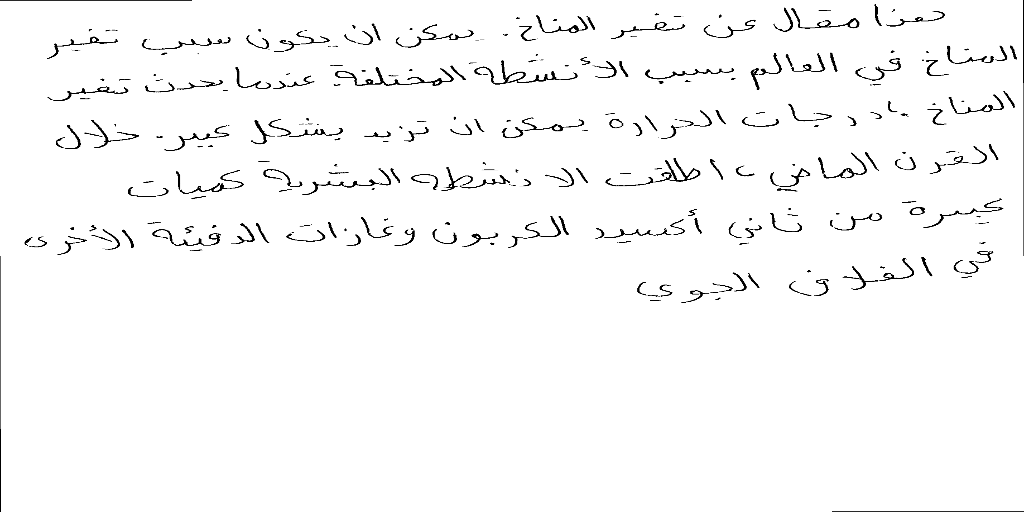 هذا مقال عن تغير المناخ. يمكن ان يكون سبب تغير
المناخ في العالم بسبب الأنشطة المختلفة عندما يحدث تغير
المناخ ، درجات الحرارة يمكن ان تزيد بشكل كبير. خلال
القرن الماضي ، اطلقت الانشطه البشرية كميات
كبيرة من ثاني أكسيد الكربون وغازات الدفيئة الأخرى
في الغلاف الجوي